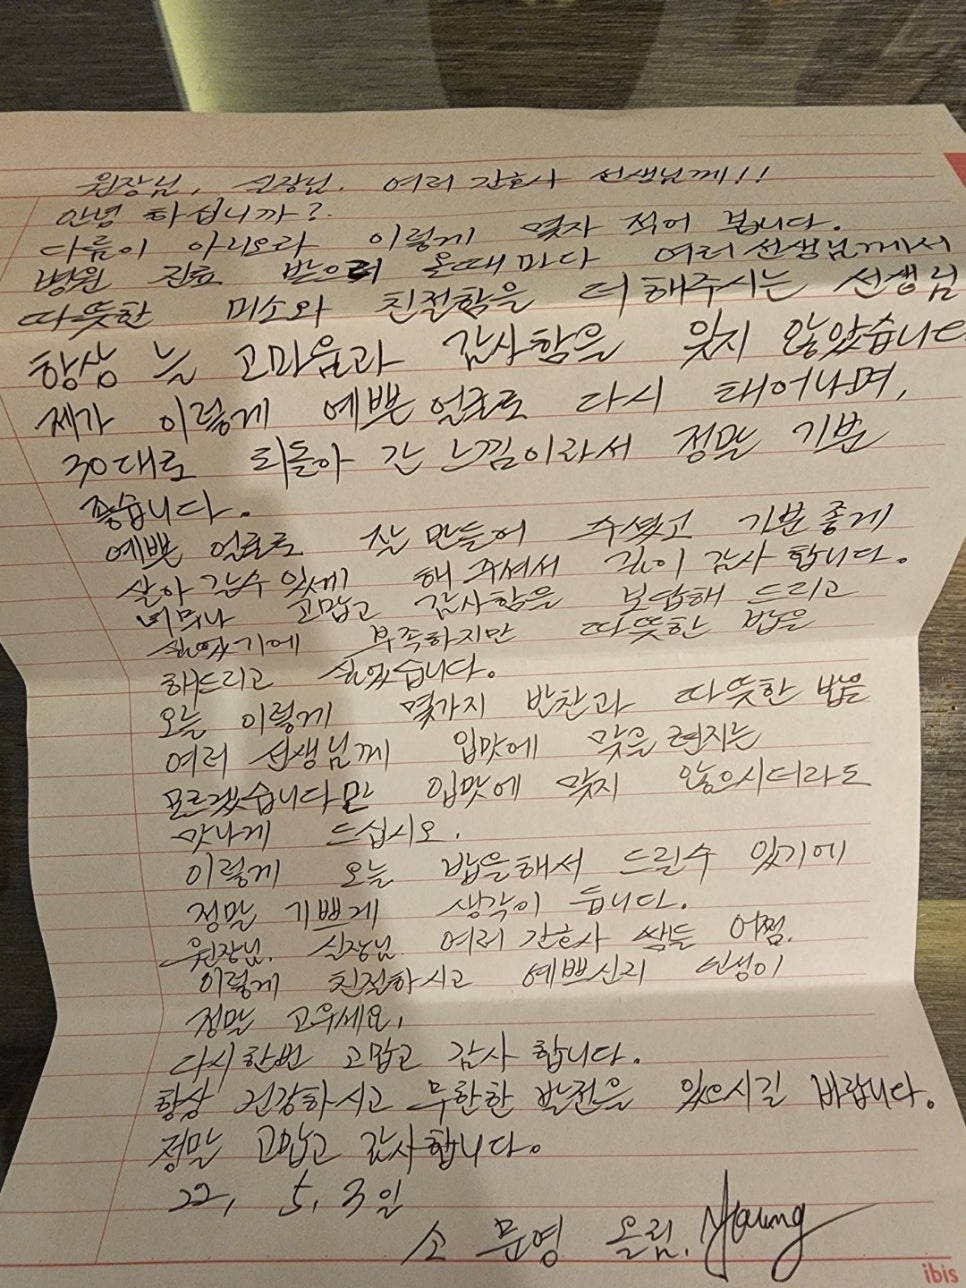 원장님, 실장님. 여러 간호사 선생님께!!
안녕 하십니까?
다름이 아리오라 이렇게 몇자 적어 봅니다.
병원 진료 받으러 올때마다 여러 선생님께서
따뜻한 미소와 친절함을 더 해주시는 선생님
항상 늘 고마움과 감사함을 잊지 않았습니다
제가 이렇게 예쁜 얼굴로 다시 태어나며,
30대로 되돌아 간 느낌이라서 정말 기분
좋습니다.
예쁜 얼굴로 잘 만들어 주셨고 기분좋게
살아 갈수 있게 해 주셔서 깊이 감사 합니다.
너무나 고맙고 감사함을 보답해 드리고
싶었기에 부족하지만 따뜻한 밥을
해드리고 싶었습니다.
오늘 이렇게 몇가지 반찬과 따뜻한 밥을
여러 선생님께 입맛에 맞을런지는
모르겠습니다만 입맛에 맞지 않으시더라도
맛나게 드십시오.
이렇게 오늘 밥을해서 드릴수 있기에
정말 기쁘게 생각이 듭니다.
원장님. 실장님. 여러 간호사 쌤들 어쩜.
이렇게 친절하시고 예쁘신지 인성이
정말 고우세요.
다시한번 고맙고 감사 합니다.
항상 건강하시고 무한한 발전을 있으시길 바랍니다.
정말 고맙고 감사합니다.
22, 5, 3일
소 문영 올림.
ibis